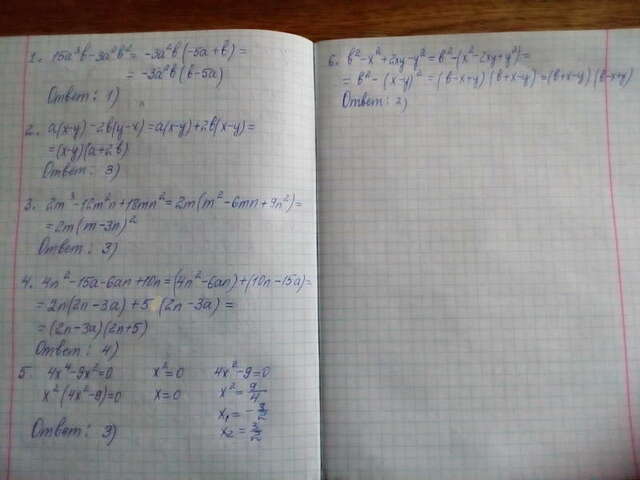 1. 15a³b-3a²b² = -3a²b(-5a+b)=
= -3a²b(b-5a)
Ответ: 1)
2. a(x-y)-2b(y-x)=a(x-y)+2b(x-y)=
=(x-y)(a+2b)
Ответ: 3)
3. 2m³-12m²n+18mn²=2m(m²-6mn+9n²)=
=2m(m-3n)²
Ответ: 3)
4. 4n²-15a-6an+10n=(4n²-6an)+(10n-15a)=
=2n(2n-3a)+5(2n-3a)=
=(2n-3a)(2n+5)
Ответ: 4)
5. 4x⁴-9x²=0 x²=0 4x²-9=0
x²(4x²-9)=0 x=0 x²=9/4
x₁=-3/2
Ответ: 3) x₂=3/2
6. b²-x²+2xy-y²=b²-(x²-2xy+y²)=
=b²-(x-y)²=(b-x+y)(b+x-y)=(b+x-y)(b-x+y)
Ответ: 2)